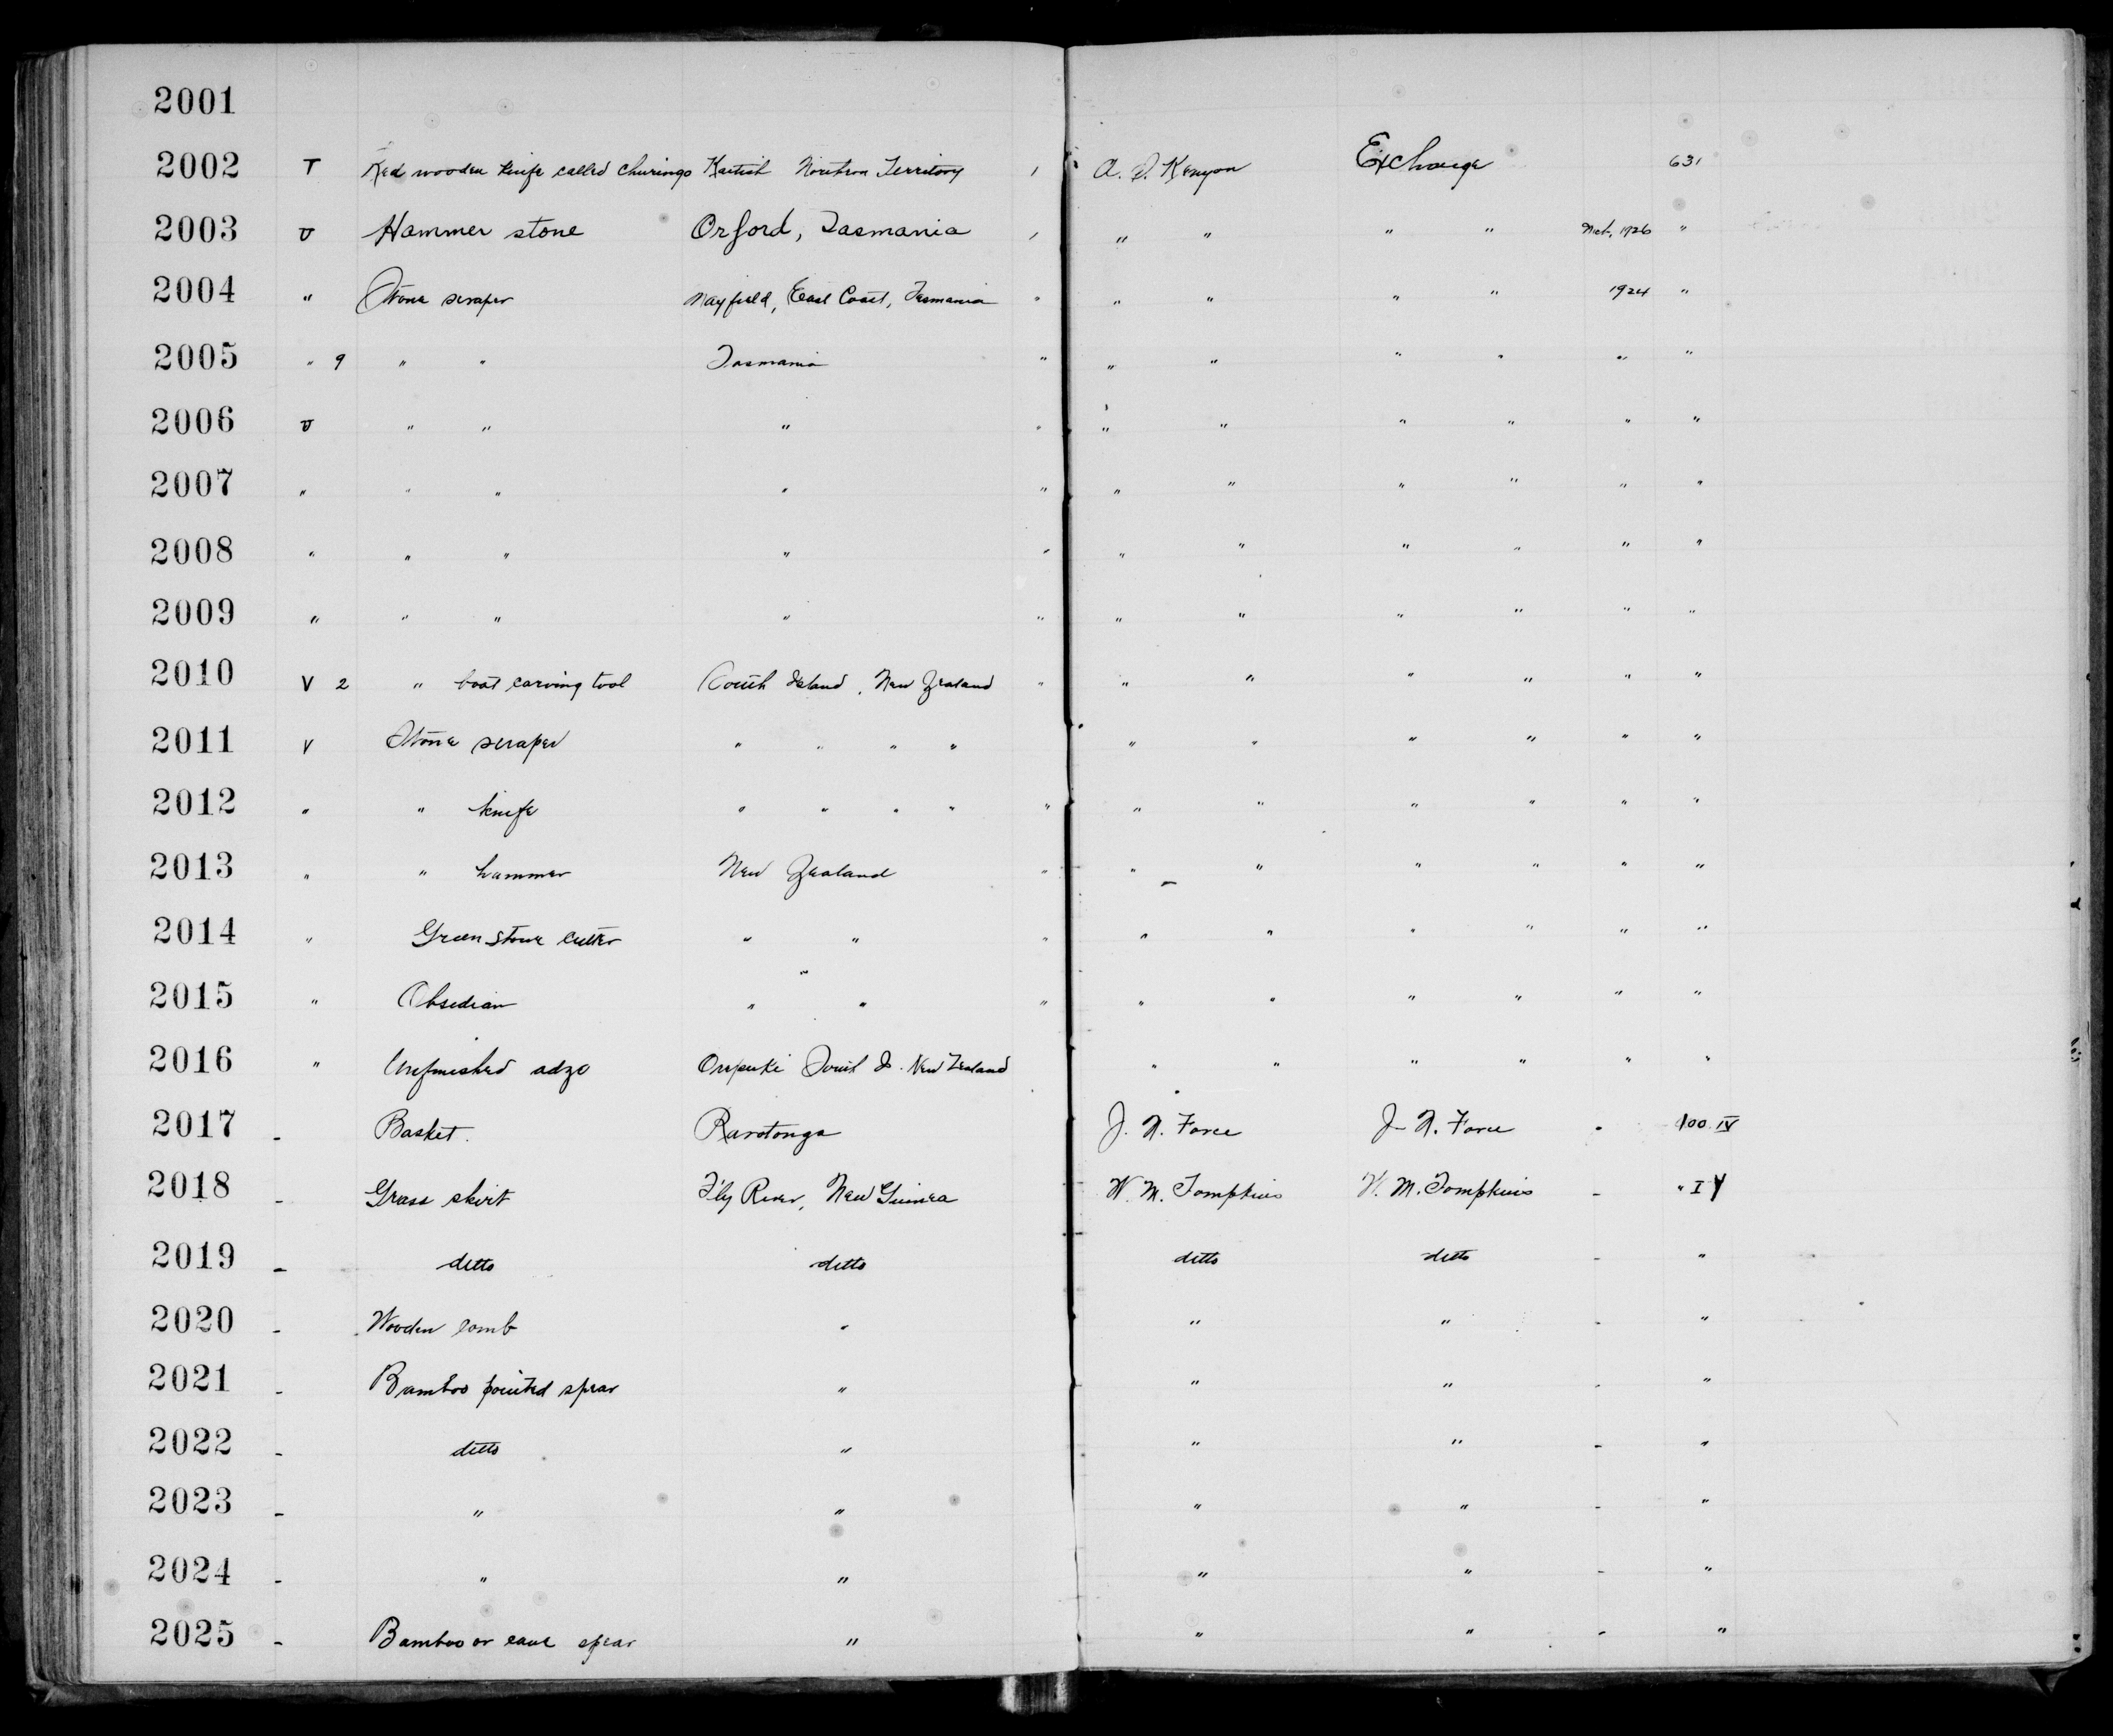 2001
2002 T Red wooden knife called Churinga Kaitish Northern Territory 1 A. S. Kenyon Exchange 631
2003 U Hammer stone Orford, Tasmania 1 " " " " 1926 "
2004 " Stone scraper Mayfield, East Coast, Tasmania " " " " " 1924 "
2005 " 9 " " Tasmania " " " " " " "
2006 U " " " " " " " " " "
2007 " " " " " " " " " " "
2008 " " " " " " " " " " "
2009 " " " " " " " " " " "
2010 V 2 " boat carving tool South Island, New Zealand " " " " " " "
2011 V Stone scraper " " " " " " " " " "
2012 " " knife " " " " " " " " " " "
2013 " " hammer New Zealand " " " " " " "
2014 " Green stone cutter " " " " " " " " "
2015 " Obsidian " " " " " " " " "
2016 " Unfinished adze Orepuki South I. New Zealand " " " " " "
2017 - Basket. Rarotonga J. N. Force J. N. Force - 100 IV
2018 - Grass skirt Fly River, New Guinea W. M. Tompkins W. M. Tompkins - " IV
2019 - ditto ditto ditto ditto - "
2020 - Wooden comb " " " - "
2021 - Bamboo pointed spear " " " - "
2022 - ditto " " " - "
2023 - " " " " - "
2024 - " " " " - "
2025 - Bamboo or cane spear " " " - "